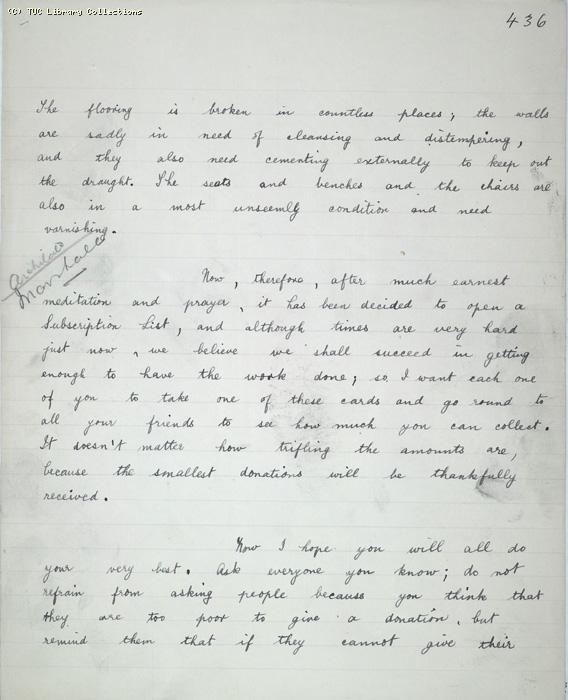 (C) TUC Library Collections
436
The flooring is broken in countless places; the walls
are sadly in need of cleansing and distempering,
and they also need cementing externally to keep out
the draught. The seats and benches and the chairs are
also in a most unseemly condition and need
varnishing.
Now, therefore, after much earnest
meditation and prayer, it has been decided to open a
Subscription List, and although times are very hard
just now, we believe we shall succeed in getting
enough to have the work done; so, I want each one
of you to take one of these cards and go round to
all your friends to see how much you can collect.
It doesn't matter how trifling the amounts are,
because the smallest donations will be thankfully
received.
Now I hope you will all do
your very best. Ask everyone you know; do not
refrain from asking people because you think that
they are too poor to give a donation, but
remind them that if they cannot give their